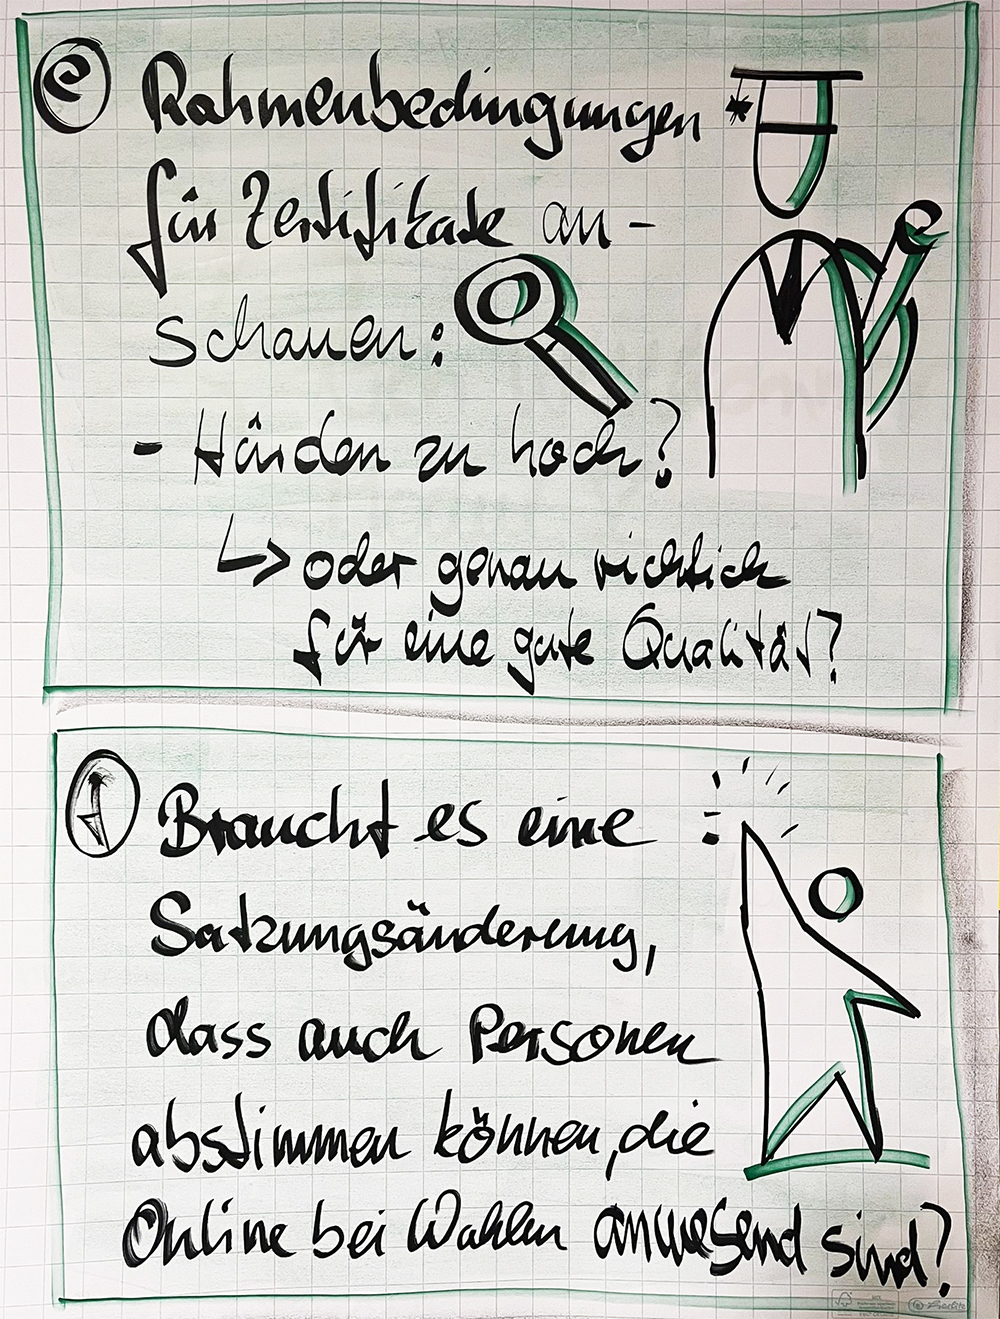 e Rahmenbedingungen
für Zertifikate an-
schauen:
- Hürden zu hoch?
↳ oder genau richtich
für eine gute Qualität?
f Braucht es eine
Satzungsänderung,
dass auch Personen
abstimmen können, die
Online bei Wahlen anwesend sind?